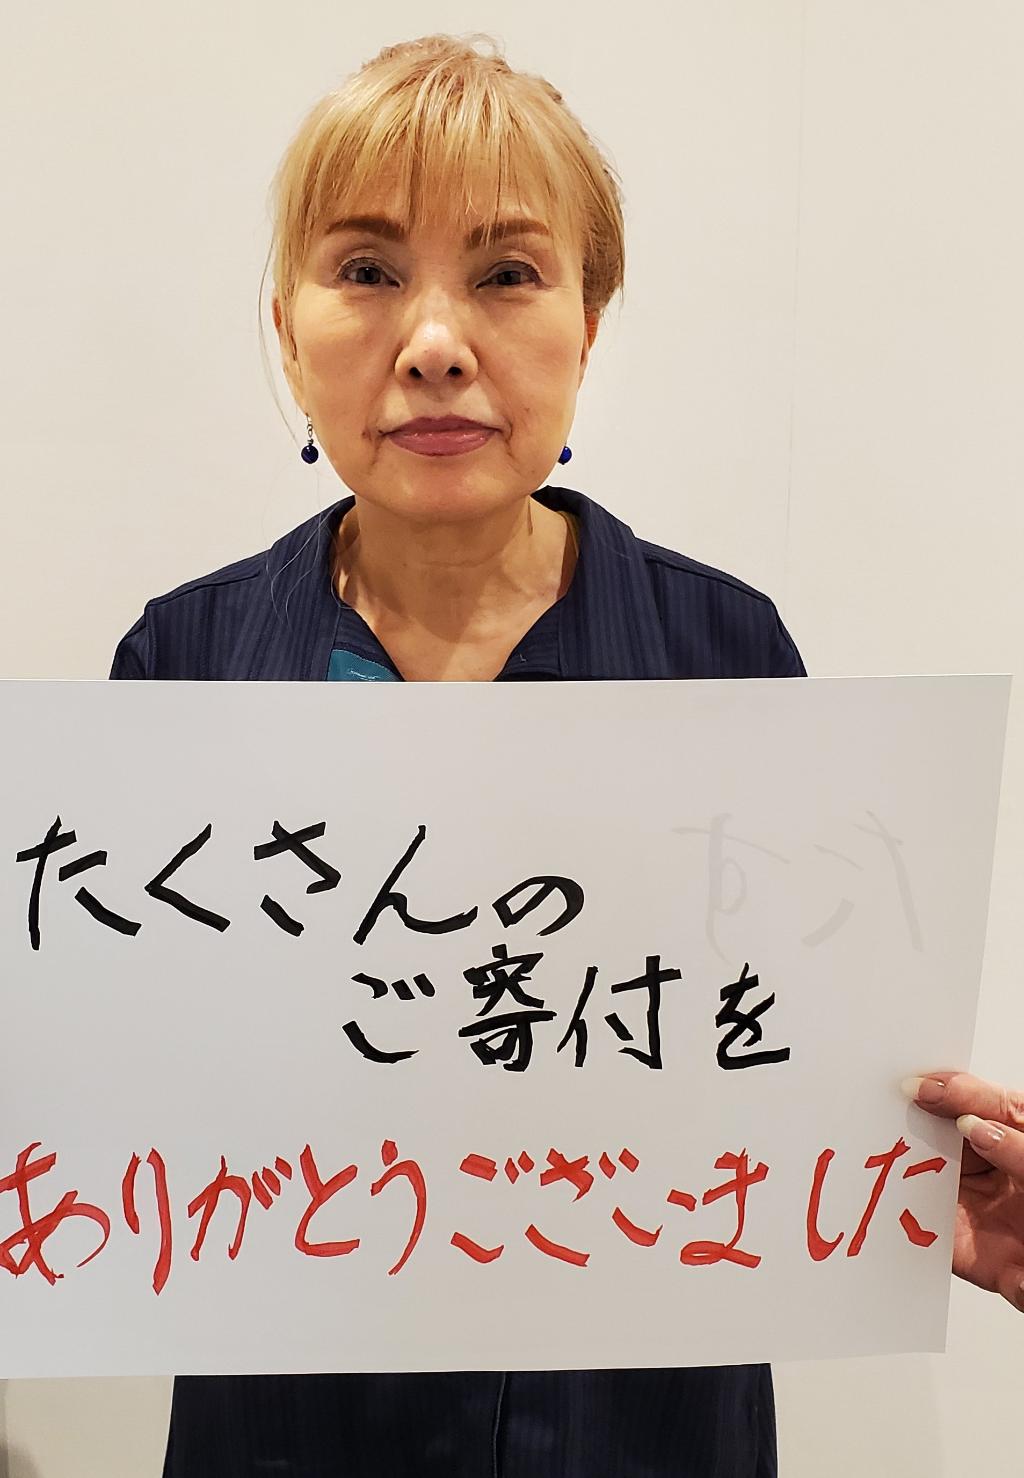 たくさんの
ご寄付を
ありがとうございました